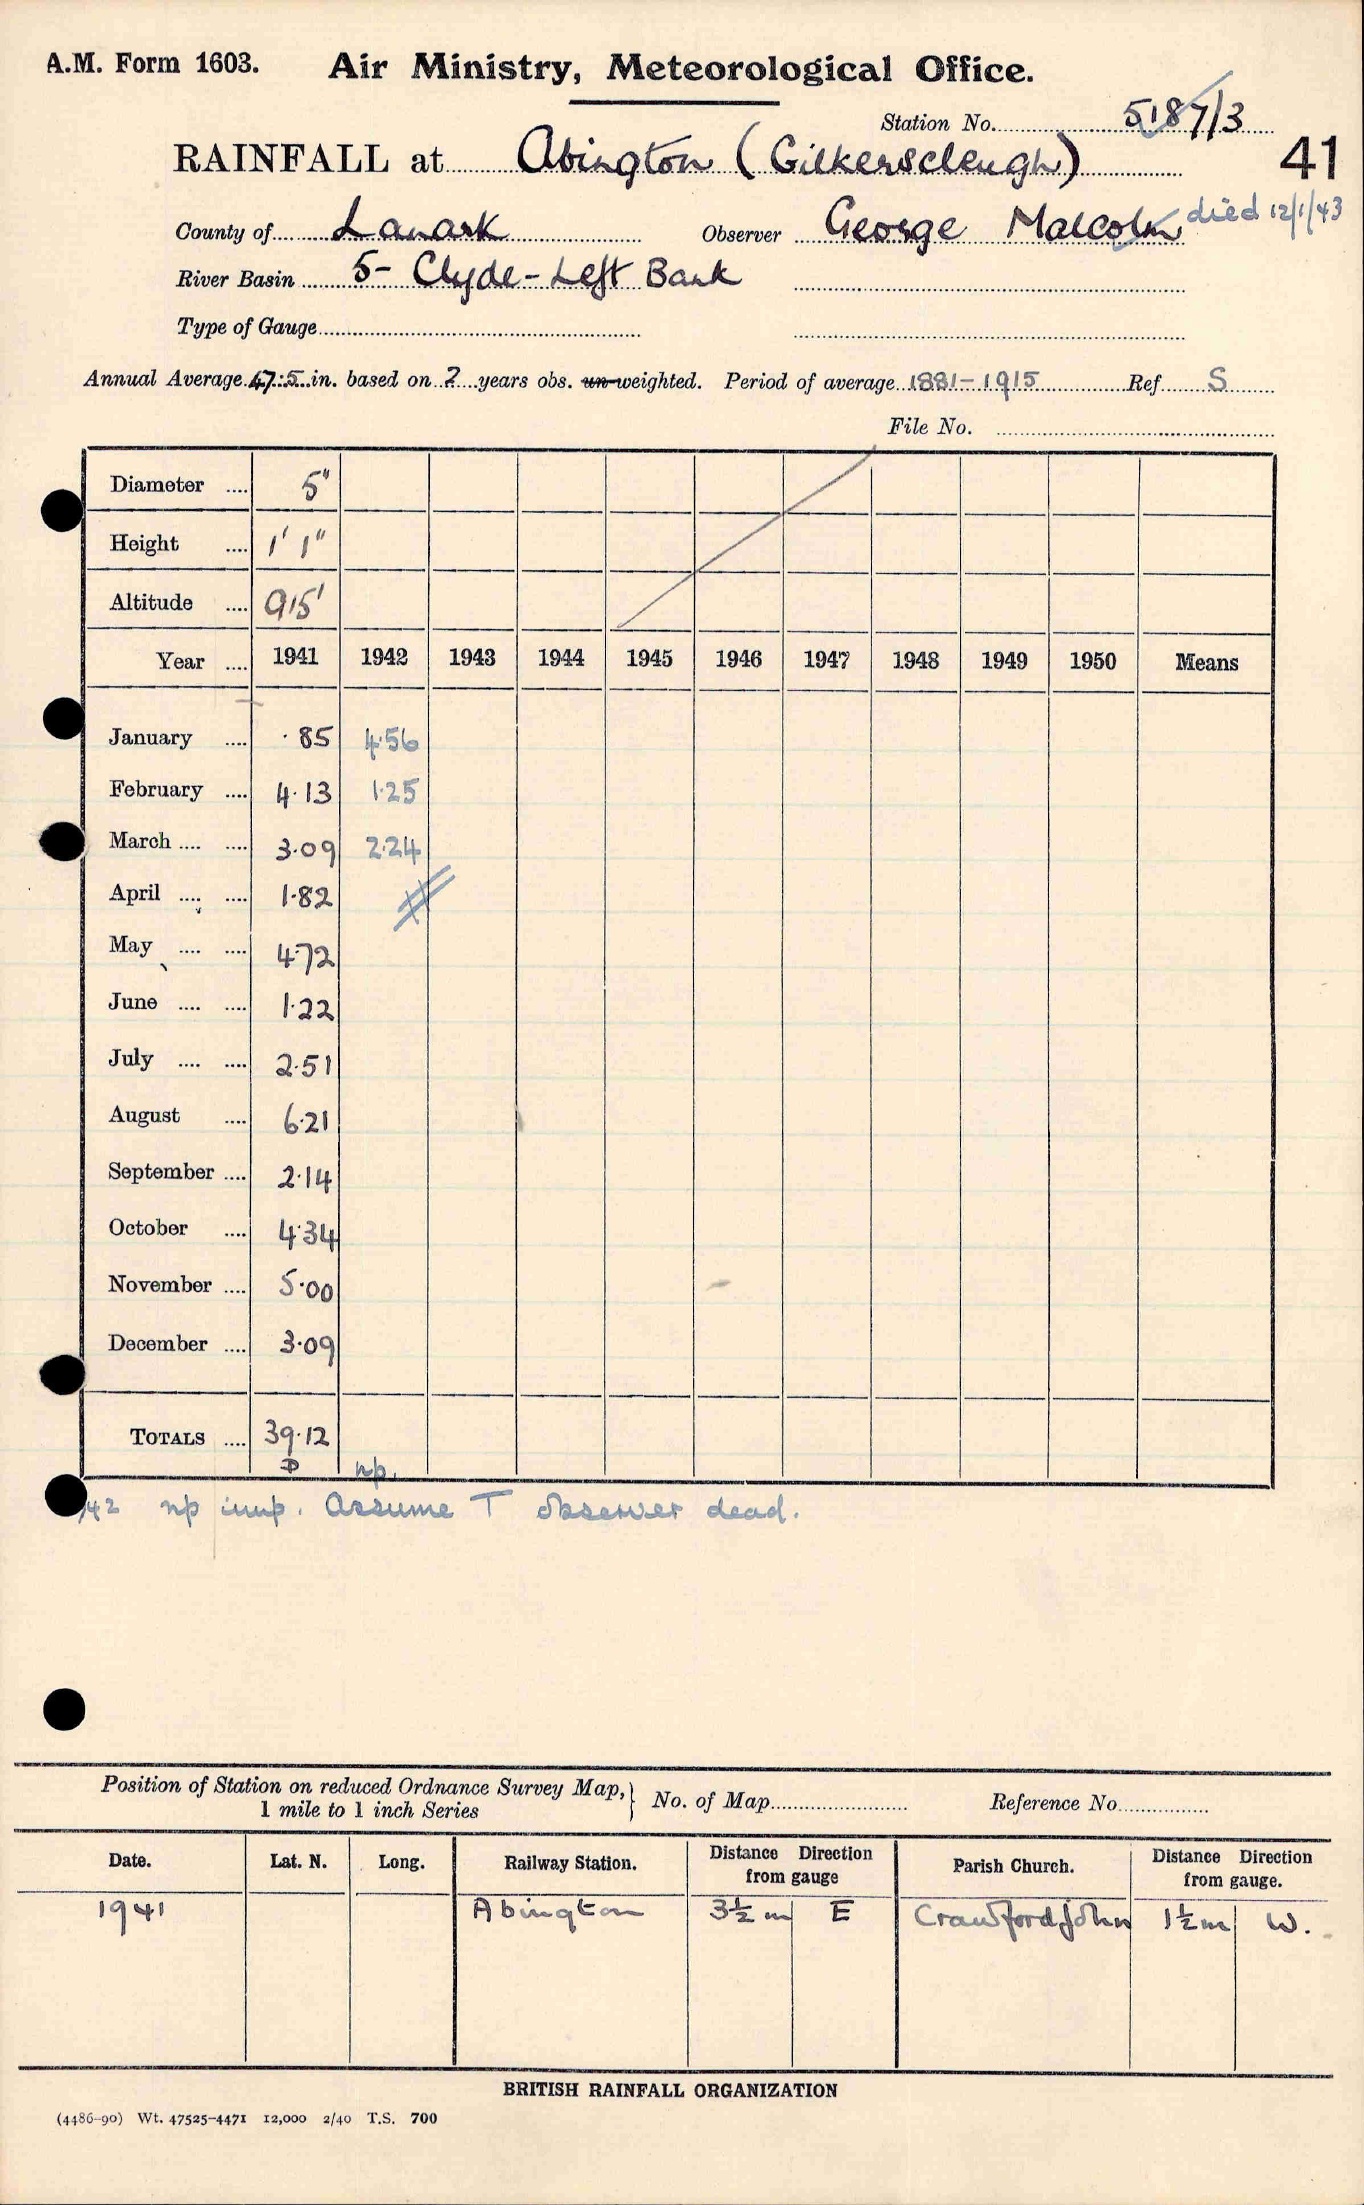 A.M. Form 1603. Air Ministry, Meteorological Office.
Station No. 5187/3
RAINFALL at Abington (Gilkerscleugh) 41
County of Lanark Observer George Malcolm died 12/1/43
River Basin 5- Clyde-Left Bank
Type of Gauge
Annual Average 47.5 in. based on 2 years obs. un-weighted. Period of average 1881-1915 Ref S
File No.
Diameter .... 5"
Height .... 1' 1"
Altitude .... 915'
Year .... 1941 1942 1943 1944 1945 1946 1947 1948 1949 1950 Means
January .... .85 4.56
February .... 4.13 1.25
March .... .... 3.09 2.24
April .... .... 1.82
May .... .... 4.72
June .... .... 1.22
July .... .... 2.51
August .... 6.21
September .... 2.14
October .... 4.34
November .... 5.00
December .... 3.09
TOTALS .... 39.12
D np.
42 np imp. Assume T observer dead.
Position of Station on reduced Ordnance Survey Map, 1 mile to 1 inch Series } No. of Map Reference No.
Date. Lat. N. Long. Railway Station. Distance Direction from gauge Parish Church. Distance Direction from gauge.
1941 Abington 3½ m E Crawfordjohn 1½ m W.
BRITISH RAINFALL ORGANIZATION
(4486-90) Wt. 47525-4471 12,000 2/40 T.S. 700